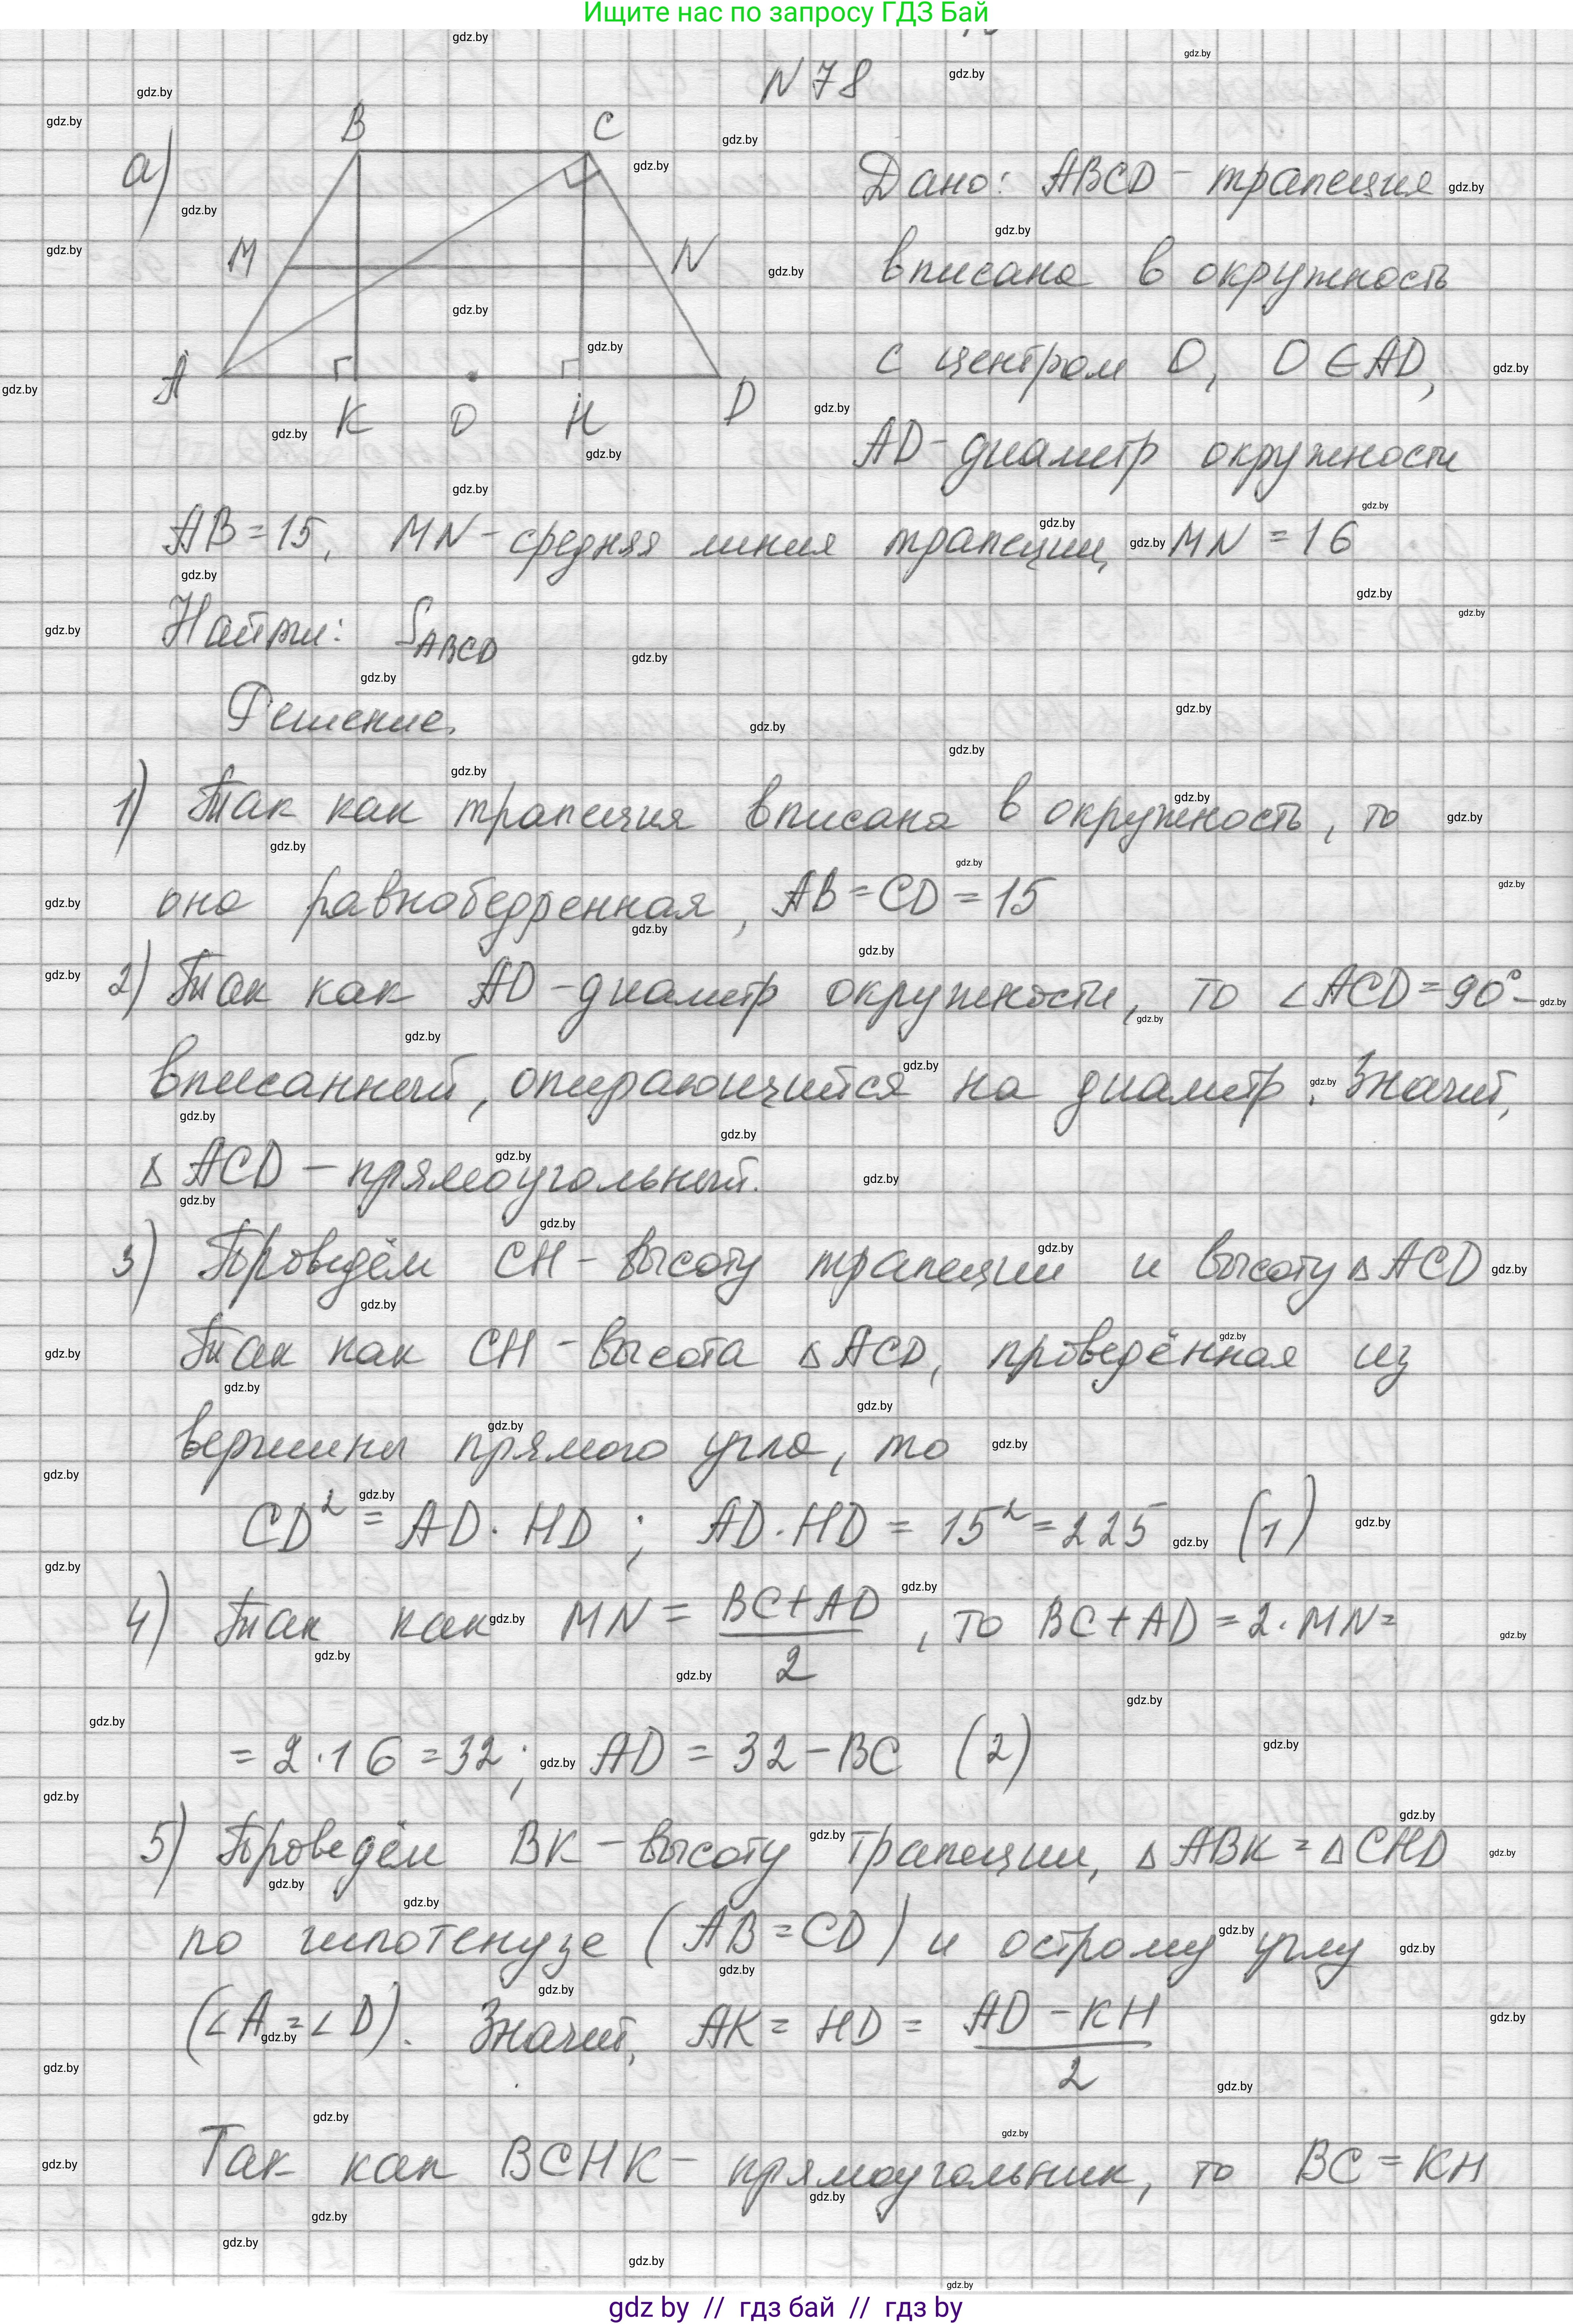 Ищите нас по запросу ГДЗ Бай
N 78
а)
B C
M N
A K O H D
Дано: ABCD - трапеция
вписана в окружность
с центром O, O ∈ AD,
AD - диаметр окружности
AB = 15, MN - средняя линия трапеции, MN = 16
Найти: S_ABCD
Решение.
1) Так как трапеция вписана в окружность, то
она равнобедренная, AB = CD = 15
2) Так как AD - диаметр окружности, то ∠ACD = 90° -
вписанный, опирающийся на диаметр. Значит,
△ ACD - прямоугольный.
3) Проведём CH - высоту трапеции и высоту △ ACD
Так как CH - высота △ ACD, проведённая из
вершины прямого угла, то
CD² = AD · HD ; AD · HD = 15² = 225 (1)
4) Так как MN = (BC + AD)/2, то BC + AD = 2 · MN =
= 2 · 16 = 32 ; AD = 32 - BC (2)
5) Проведём BK - высоту трапеции, △ ABK = △ CHD
по гипотенузе (AB = CD) и острому углу
(∠A = ∠D). Значит, AK = HD = (AD - KH)/2
Так как BCHK - прямоугольник, то BC = KH
gdz by // гдз бай // гдз by